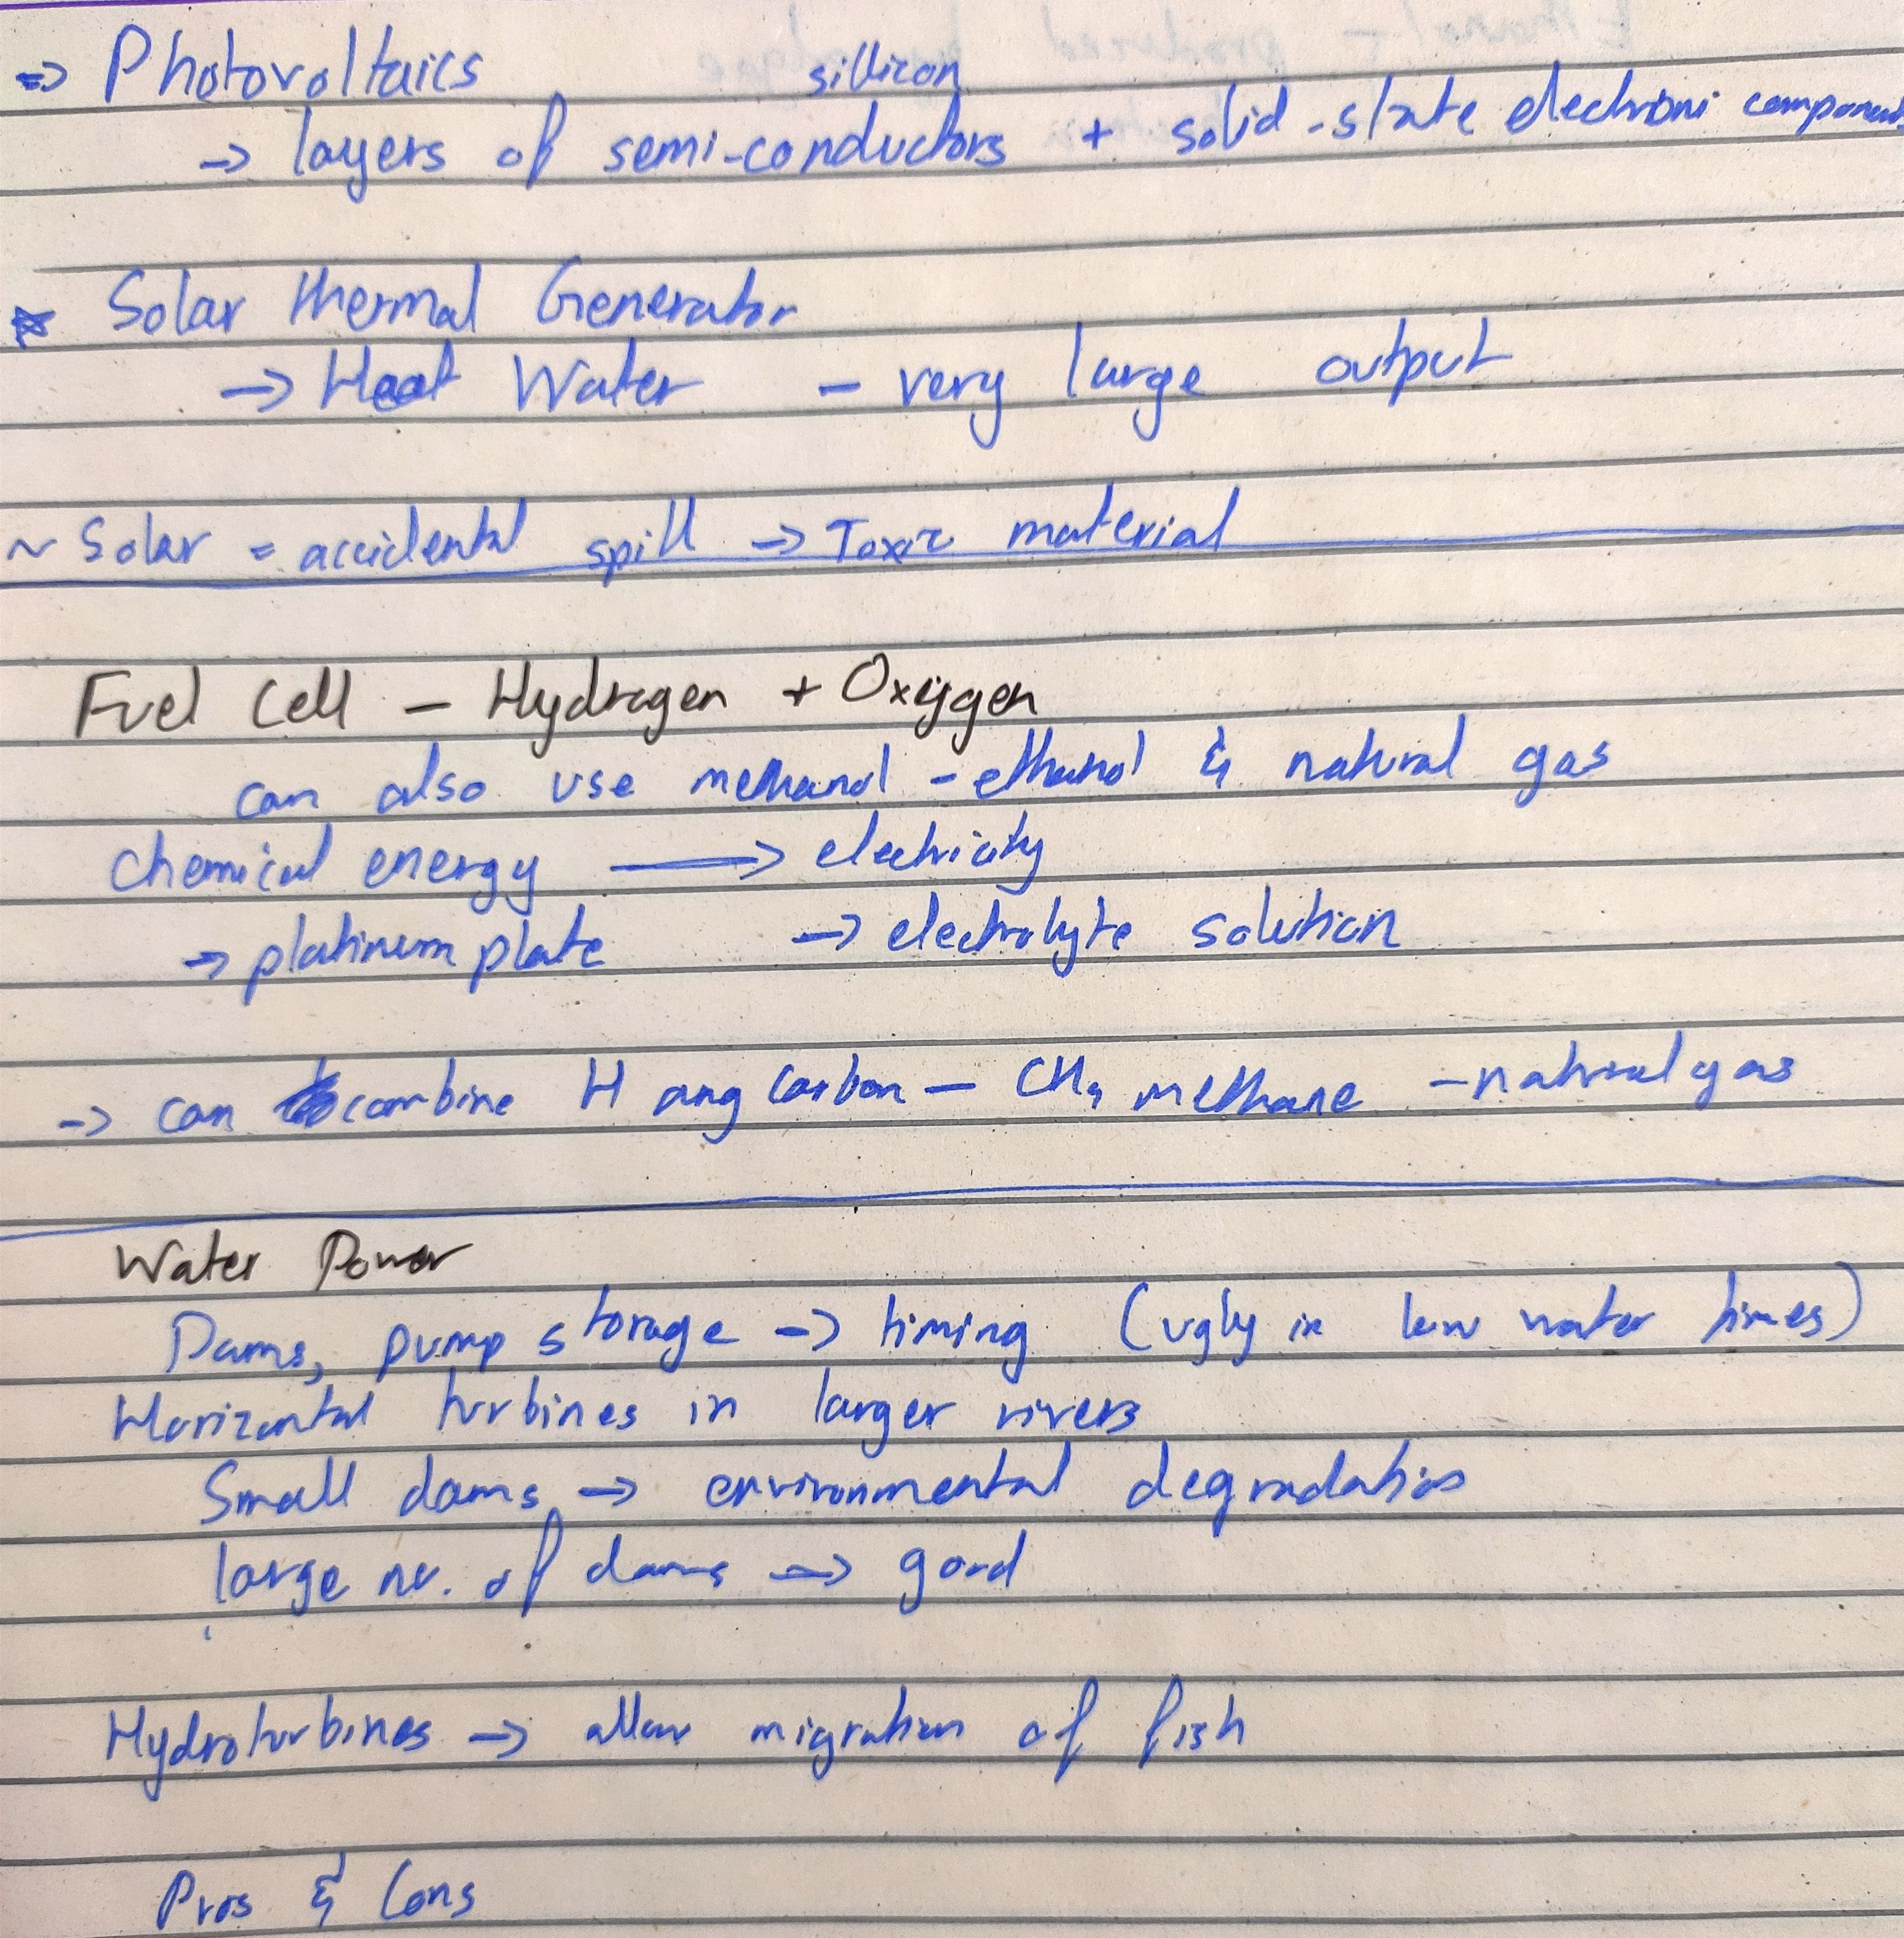 ⇒ Photovoltaics
sillicon
→ layers of semi-conductors + solid-state electroni components
Solar thermal Generator
→ Heat Water – very large output
~ Solar = accidental spill → Toxic material
Fuel Cell – Hydrogen + Oxygen
can also use methanol - ethanol & natural gas
chemical energy → electricity
→ platinum plate → electrolyte solution
→ can combine H ang carbon – CH4 methane – natural gas
Water Power
Dams, pump storage → timing (ugly in low water times)
Horizontal turbines in larger rivers
Small dams → environmental degradation
large nr. of dams → good
Hydroturbines → allow migration of fish
Pros & Cons